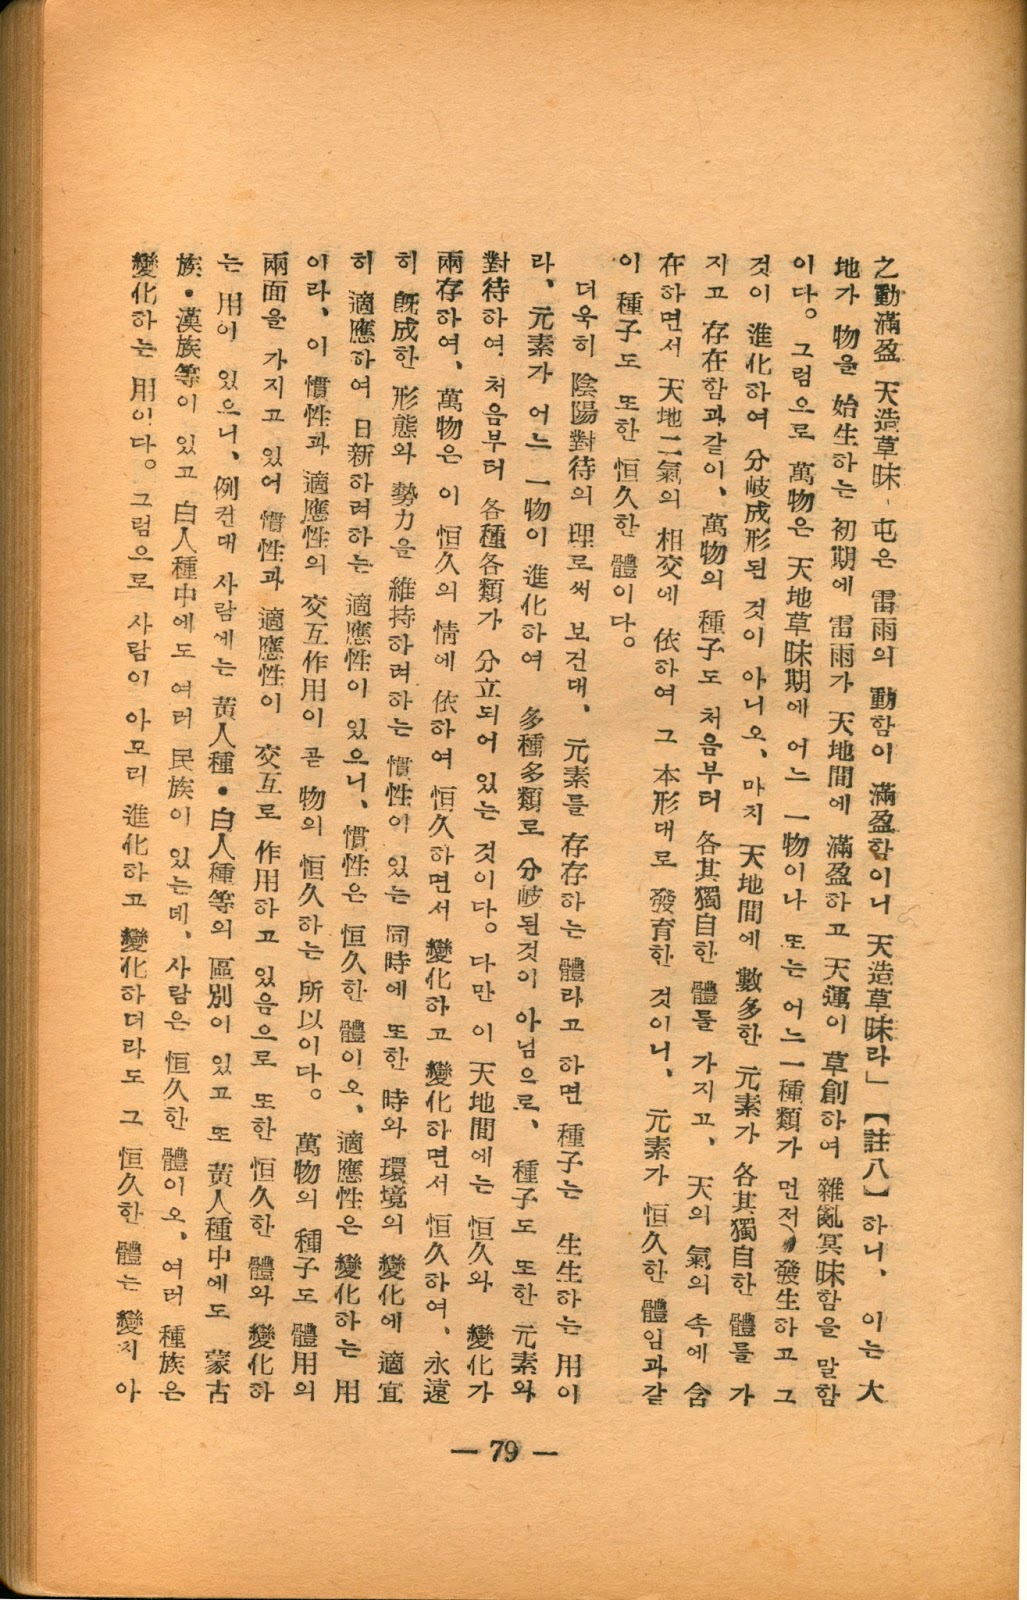 之動滿盈 天造草昧、屯은 雷雨의 動함이 滿盈함이니 天造草昧라」【註八】하니、이는 大
地가 物을 始生하는 初期에 雷雨가 天地間에 滿盈하고 天運이 草創하여 雜亂冥昧함을 말함
이다。그럼으로 萬物은 天地草昧期에 어느 一物이나 또는 어느 一種類가 먼저 發生하고 그
것이 進化하여 分岐成形된 것이 아니오、마치 天地間에 數多한 元素가 各其獨自한 體를 가
지고 存在함과같이、萬物의 種子도 처음부터 各其獨自한 體를 가지고、天의 氣의 속에 含
在하면서 天地二氣의 相交에 依하여 그 本形대로 發育한 것이니、元素가 恒久한 體임과같
이 種子도 또한 恒久한 體이다。
더욱히 陰陽對待의 理로써 보건대、元素를 存存하는 體라고 하면 種子는 生生하는 用이
라、元素가 어느 一物이 進化하여 多種多類로 分岐된것이 아님으로、種子도 또한 元素와
對待하여 처음부터 各種各類가 分立되어 있는 것이다。다만 이 天地間에는 恒久와 變化가
兩存하여、萬物은 이 恒久의 情에 依하여 恒久하면서 變化하고 變化하면서 恒久하여、永遠
히 旣成한 形態와 勢力을 維持하려하는 慣性이 있는 同時에 또한 時와 環境의 變化에 適宜
히 適應하여 日新하려하는 適應性이 있으니、慣性은 恒久한 體이오、適應性은 變化하는 用
이라、이 慣性과 適應性의 交互作用이 곧 物의 恒久하는 所以이다。萬物의 種子도 體用의
兩面을 가지고 있어 慣性과 適應性이 交互로 作用하고 있음으로 또한 恒久한 體와 變化하
는 用이 있으니、例컨대 사람에는 黃人種•白人種等의 區別이 있고 또 黃人種中에도 蒙古
族•漢族等이 있고 白人種中에도 여러 民族이 있는데、사람은 恒久한 體이오、여러 種族은
變化하는 用이다。그럼으로 사람이 아모리 進化하고 變化하더라도 그 恒久한 體는 變치 아
— 79 —